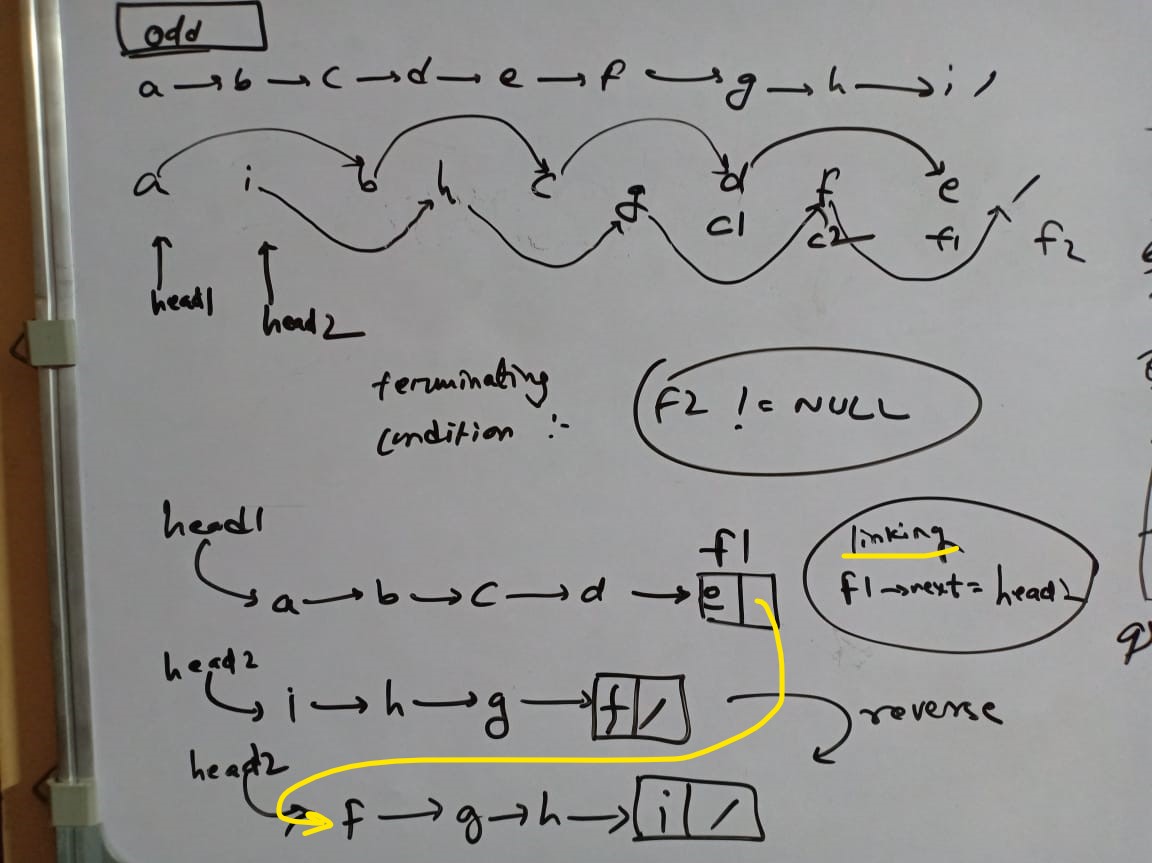 odd
a → b → c → d → e → f → g → h → i /
a i b h c g d f e /
c1 c2 f1 f2
head1
head2
terminating
condition :-
f2 != NULL
head1
f1
a → b → c → d → e
linking
f1→next = head2
head2
i → h → g → f /
reverse
head2
f → g → h → i /